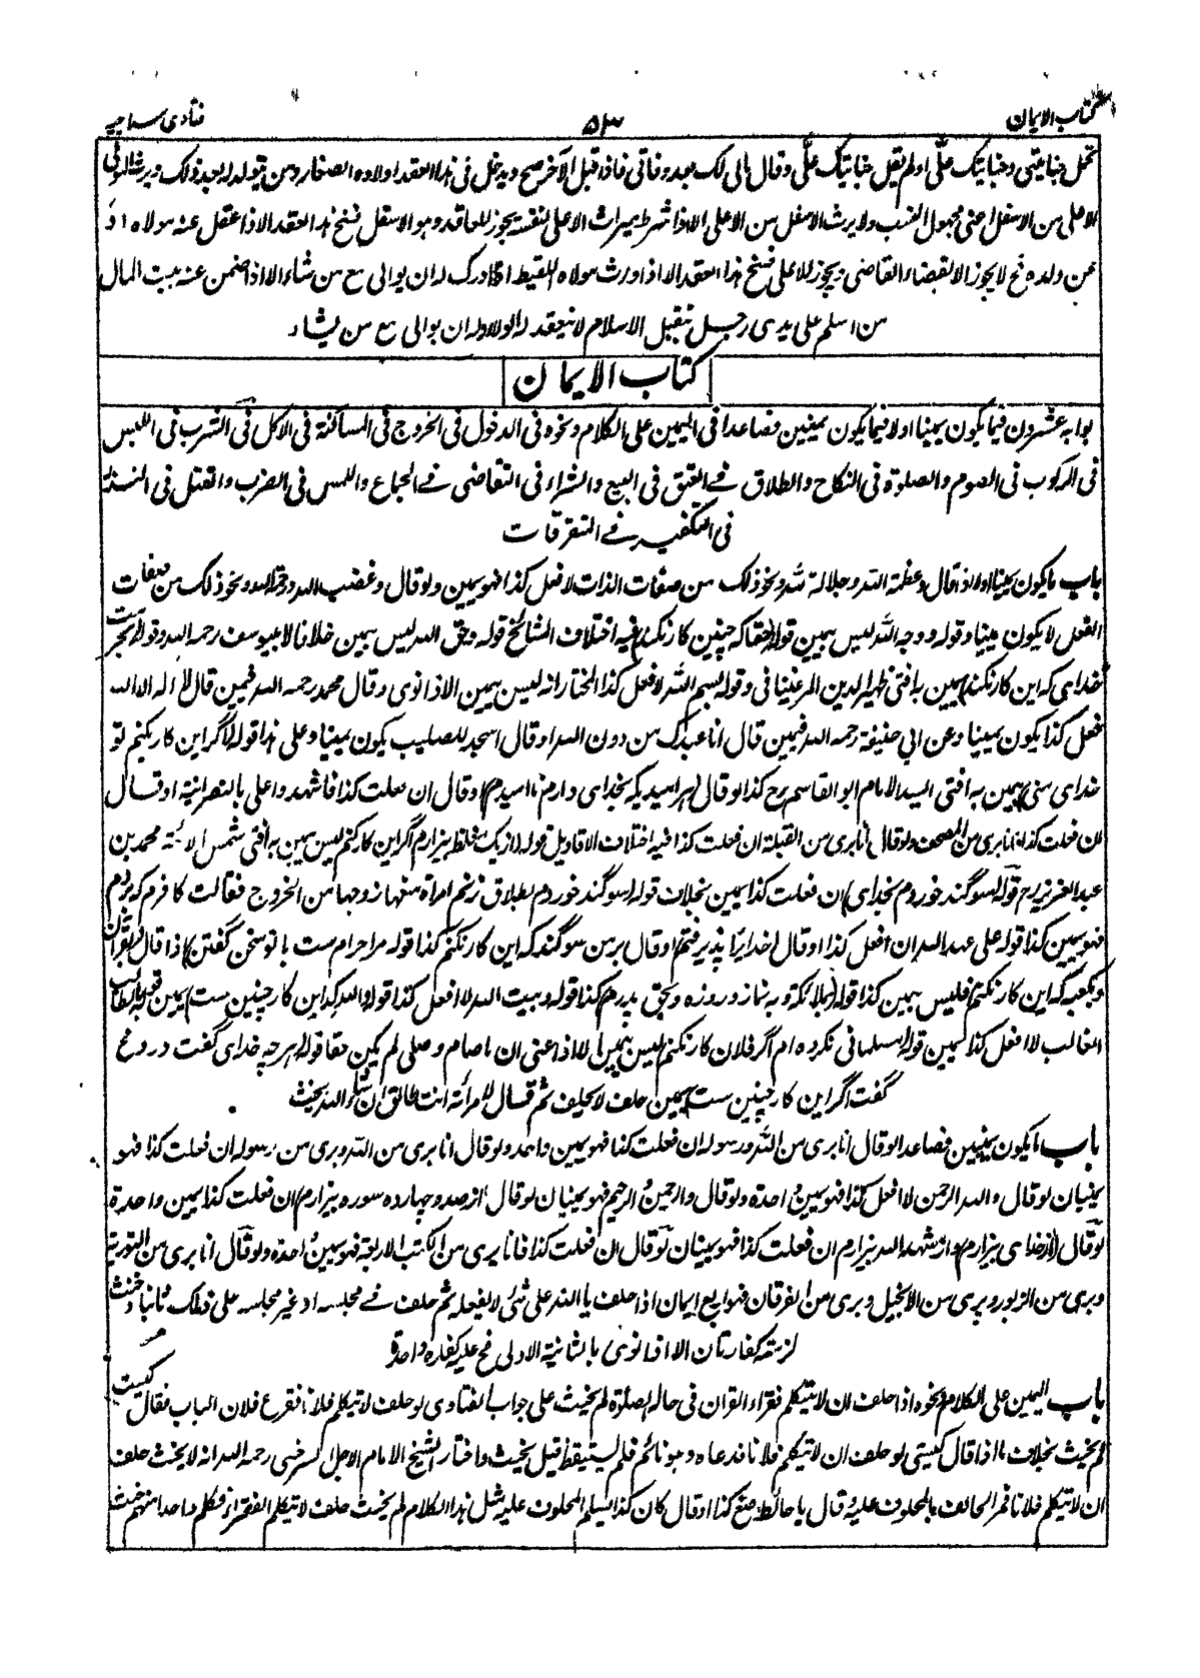 كتاب الايمان
٥٣
فتاوى سراجيه
تحمل جنايتى وجنايتك علىّ او لم يقل جنايتك علىّ وقال مالى لك بعد وفاتى فاذا قبل الآخر صح ويدخل فى هذا العقد اولاده الصغار ومن يتولد له بعد ذلك ويرث المولى
الاعلى من الاسفل اعنى مجهول النسب ولا يرث الاسفل من الاعلى الا اذا شرط ميراث الاعلى لنفسه يجوز للعاقد وهو الاسفل فسخ هذا العقد الا اذا عقل عنه مولاه او
عن ولده فح لا يجوز الا بقضاء القاضى ويجوز للاعلى فسخ هذا العقد الا اذا ورث مولاه اللقيط اذا ادرك له ان يوالى مع من شاء الا اذا ضمن عنه بيت المال
من اسلم على يدى رجل فقبل الاسلام لا ينعقد له الولاء وله ان يوالى مع من يشاء
كتاب الايمان
ابوابه عشرون فيما يكون يمينا او لا فيما يكون يمينين فصاعدا فى اليمين على الكلام ونحوه فى الدخول فى الخروج فى المساكنة فى الاكل فى الشرب فى اللبس
فى الركوب فى الصوم والصلوة فى النكاح والطلاق فى العتق فى البيع والشراء فى التقاضى فى الجماع واللمس فى الضرب والقتل فى النسبة
فى التكفير فى المتفرقات
باب ما يكون يمينا او لا اذا قال وعظمة الله وجلالة الله ونحو ذلك من صفات الذات لا فعل كذا فهو يمين ولو قال وغضب الله ورحمة الله ونحو ذلك من صفات
الفعل لا يكون يمينا وقوله ووجه الله ليس بيمين قوله (حقا كه چنين كار نكنم) فيه اختلاف المشائخ قوله وحق الله ليس بيمين خلافا لابى يوسف رحمه الله وقوله بحرمت
خداى كه اين كار نكند) يمين به افتى ظهير الدين المرغينانى وقوله بسم الله لا فعل كذا المختار انه ليس بيمين الا اذا نوى وقال محمد رحمه الله فيمن قال لا اله الا الله
افعل كذا يكون يمينا وعن ابى حنيفة رحمه الله فيمن قال انا عبدك من دون الله او قال اسجد للصليب يكون يمينا وعلى هذا قوله (اگر اين كار نكنم تو
خداى منى) يمين به افتى السيد الامام ابو القاسم رح كذا لو قال (هر اميديكه بخداى دارم نا اميدم) او قال ان فعلت كذا فاشهدوا على بالنصرانية او قال
ان فعلت كذا انا برى من المصحف ولو قال انا برى من القبلة ان فعلت كذا فيه اختلاف الاقاويل قوله از يك غلط بيزارم اگر اين كار كنم ليس بيمين به افتى شمس الائمة محمد بن
عبد العزيز رح قوله (سوگند خوردم بخداى) ان فعلت كذا يمين بخلاف قوله (سوگند خوردم بطلاق زنم امرأة منعها زوجها من الخروج فقالت كافرم كه روم
فهو يمين كذا قوله على عهد الله ان افعل كذا او قال (خدايرا پذيرفتم) او قال بر من سوگند كه اين كار نكنم كذا قوله مرا حرام ست با تو سخن گفتن) اذا قال بقرآن
وبكعبه كه اين كار نكنم فليس بيمين كذا قوله (بملائكه وبه نماز و روزه وبحق پدرم) كذا قوله وبيت الله لا افعل كذا قوله والله كه اين كار چنين ست) يمين قوله بالطالب
الغالب لا افعل كذا يمين قوله مسلمانى نكرده ام اگر فلان كار نكنم) ليس بيمين الا اذا عنى ان ما صام وصلى لم يكن حقا قوله هر چه خداى گفت دروغ
گفت اگر اين كار چنين ست) يمين حلف لا يحلف ثم قال لامرأته انت طالق ان شاء الله يحنث
باب ما يكون يمينين فصاعدا لو قال انا برى من الله ورسوله ان فعلت كذا فهو يمين واحد ولو قال انا برى من الله وبرى من رسوله ان فعلت كذا فهو
يمينان لو قال والله الرحمن لا افعل كذا فهو يمين واحدة ولو قال والرحمن والرحيم فهو يمينان لو قال از صد و چهارده سوره بيزارم) ان فعلت كذا يمين واحدة
لو قال (از خداى بيزارم) واز شهد الله بيزارم ان فعلت كذا فهو يمينان لو قال ان فعلت كذا فانا برى من الكتب الاربعة فهو يمين واحدة ولو قال انا برى من التورية
وبرى من الزبور وبرى من الانجيل وبرى من الفرقان فهو اربع ايمان اذا حلف بالله على شئ لا يفعله ثم حلف فى مجلسه او غير مجلسه على ذلك ثانيا وحنث
لزمته كفارتان الا اذا نوى بالثانية الاولى فح عليه كفارة واحدة
باب اليمين على الكلام ونحوه اذا حلف ان لا يتكلم فقراء القران فى حالة الصلوة لم يحنث على جواب الفتاوى لو حلف لا يتكلم فلانا فقرع فلان الباب فقال كيست
لم يحنث بخلاف ما اذا قال كيستى لو حلف ان لا يتكلم فلانا فدعاه وهو نائم فلم يستيقظ قيل يحنث واختار الشيخ الامام الاجل السرخسى رحمه الله انه لا يحنث حلف
ان لا يتكلم فلانا فمر الحالف بالمحلوف عليه وقال يا حائط صنع كذا او قال كان كذا ليسلم المحلوف عليه مثل هذا الكلام لم يحنث حلف لا يتكلم الفقراء فكلم واحدا منهم حنث